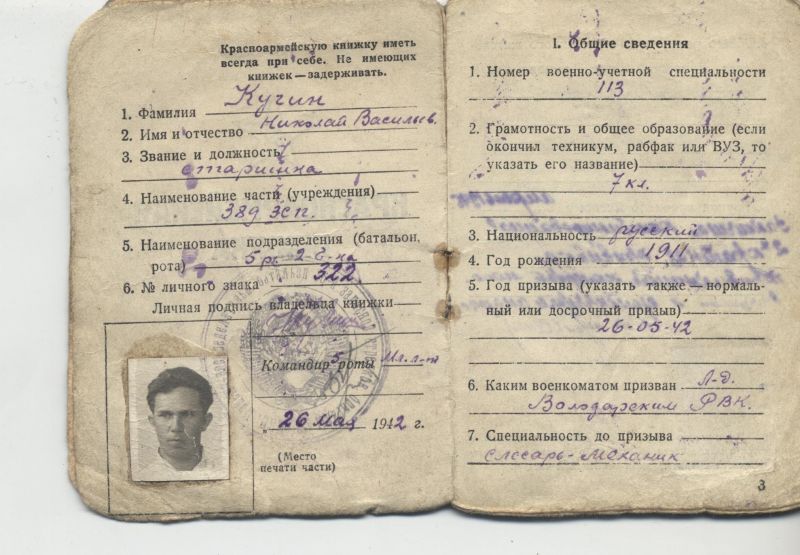 Красноармейскую книжку иметь
всегда при себе. Не имеющих
книжек — задерживать.
1. Фамилия Кучин
2. Имя и отчество Николай Васильев.
3. Звание и должность
старшина
4. Наименование части (учреждения)
389 зсп.
5. Наименование подразделения (батальон,
рота) 5 р. 2-б-на
6. № личного знака 322
Личная подпись владельца книжки
Командир 5 роты Мл. л-т
26 Мая 1942 г.
(Место
печати части)
I. Общие сведения
1. Номер военно-учетной специальности
113
2. Грамотность и общее образование (если
окончил техникум, рабфак или ВУЗ, то
указать его название)
7 кл.
3. Национальность русский
4. Год рождения 1911
5. Год призыва (указать также — нормаль-
ный или досрочный призыв)
26-05-42
6. Каким военкоматом призван Л-д.
Володарским РВК.
7. Специальность до призыва
слесарь-механик
3